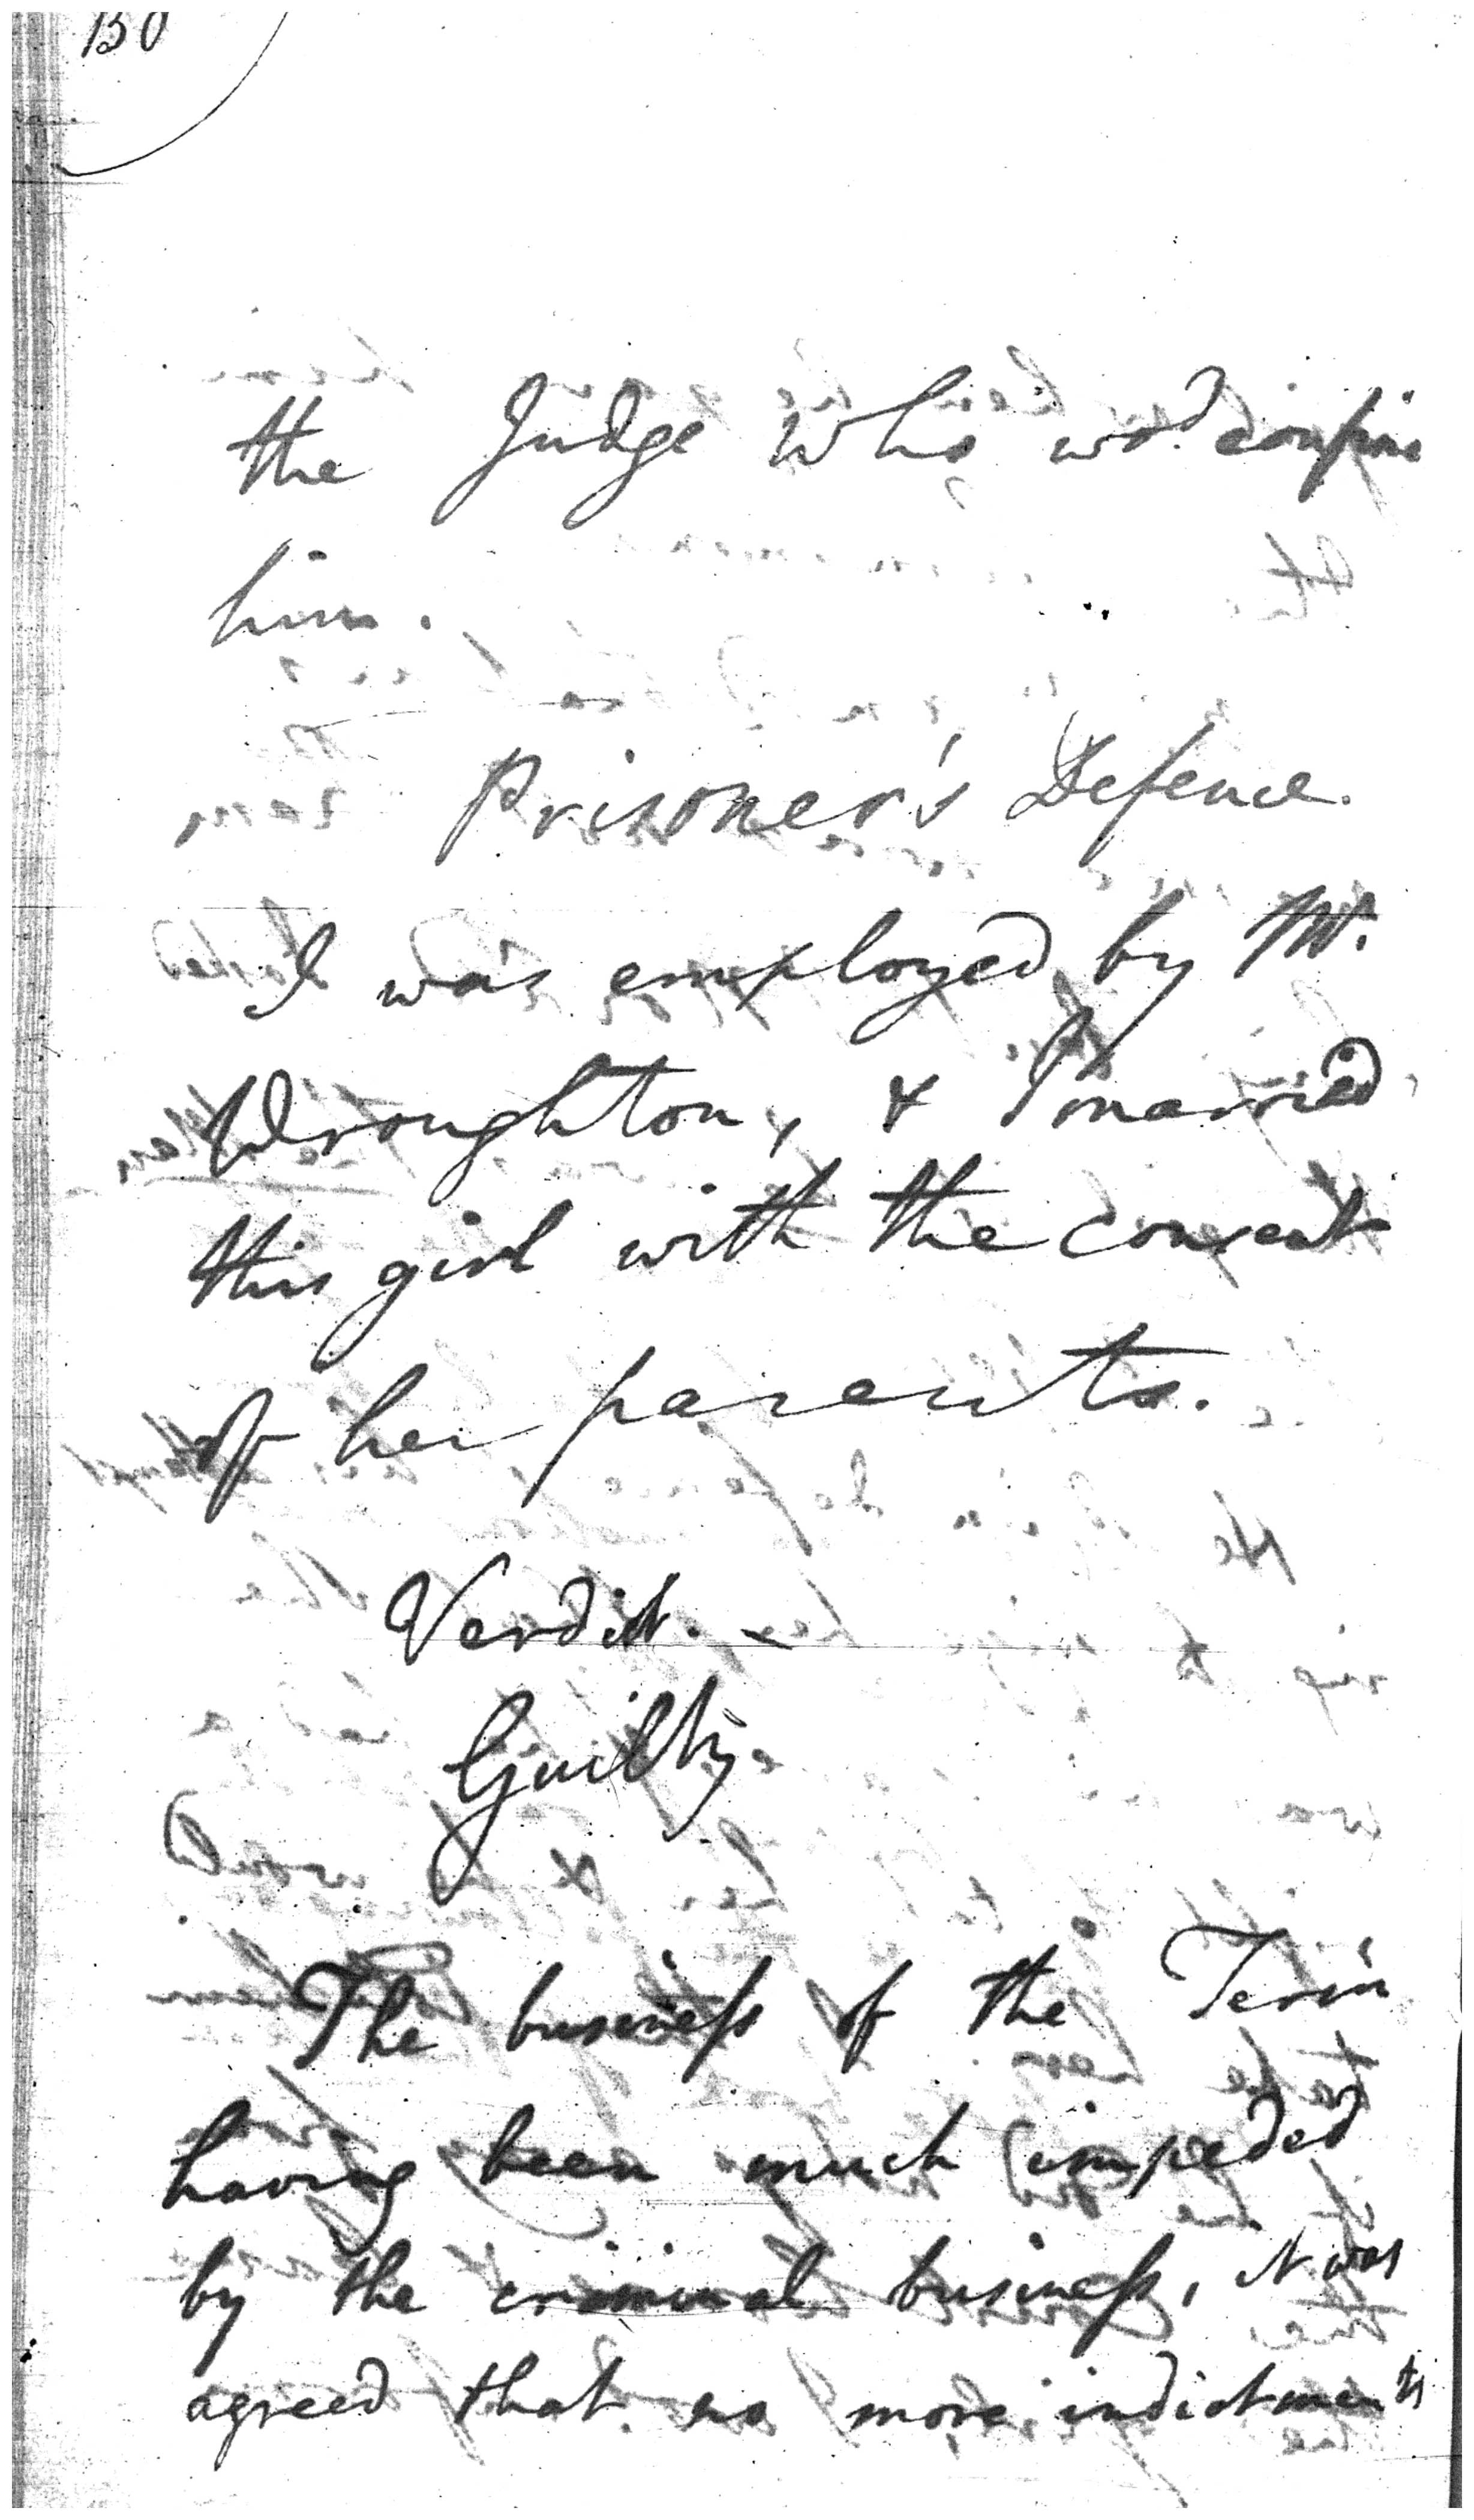 130
the Judge who wod. confine
him.
Prisoner's Defence.
I was employed by Mr.
Wroughton, & I married
this girl with the consent
of her parents.
Verdict. -
Guilty.
The business of the Term
having been much impeded
by the criminal business, it was
agreed that no more indictments